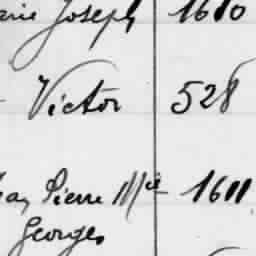 Joseph 1610
Victor 528
Pierre Mie 1611
Georges